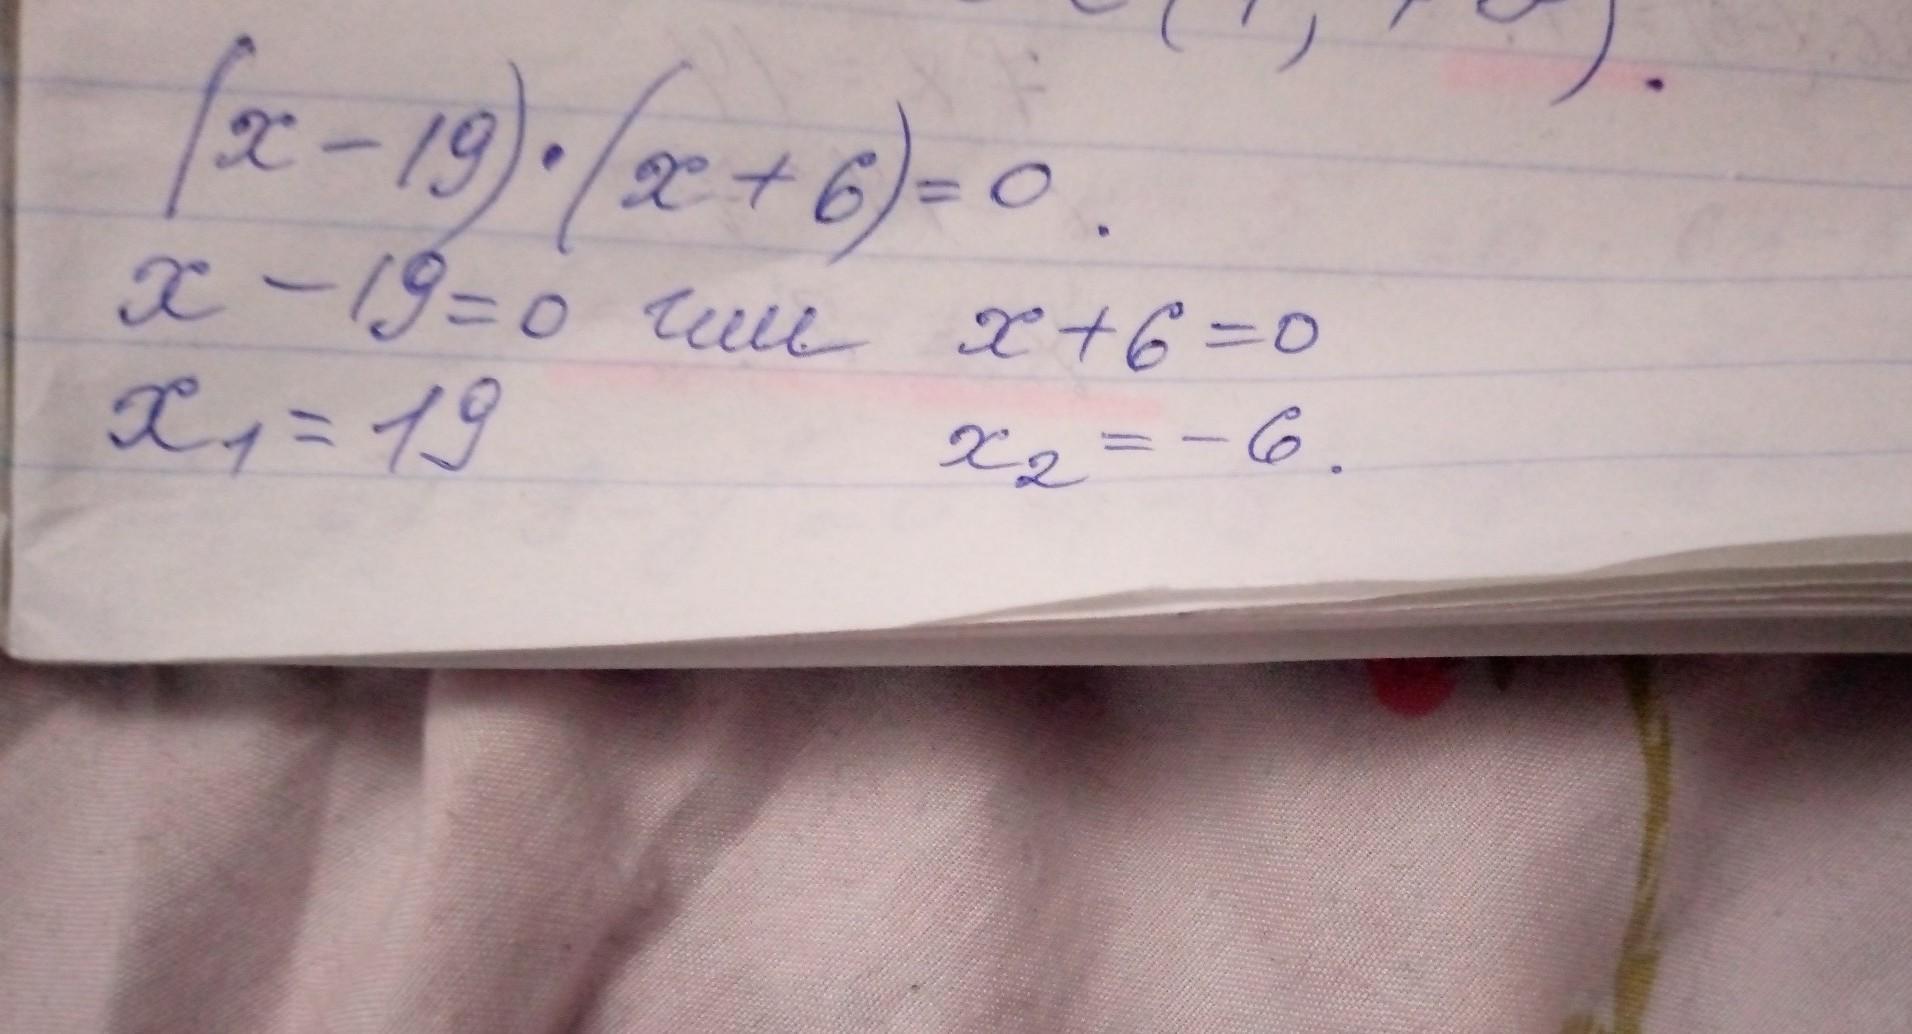 (x-19)·(x+6)=0.
x-19=0 или x+6=0
x₁=19 x₂=-6.